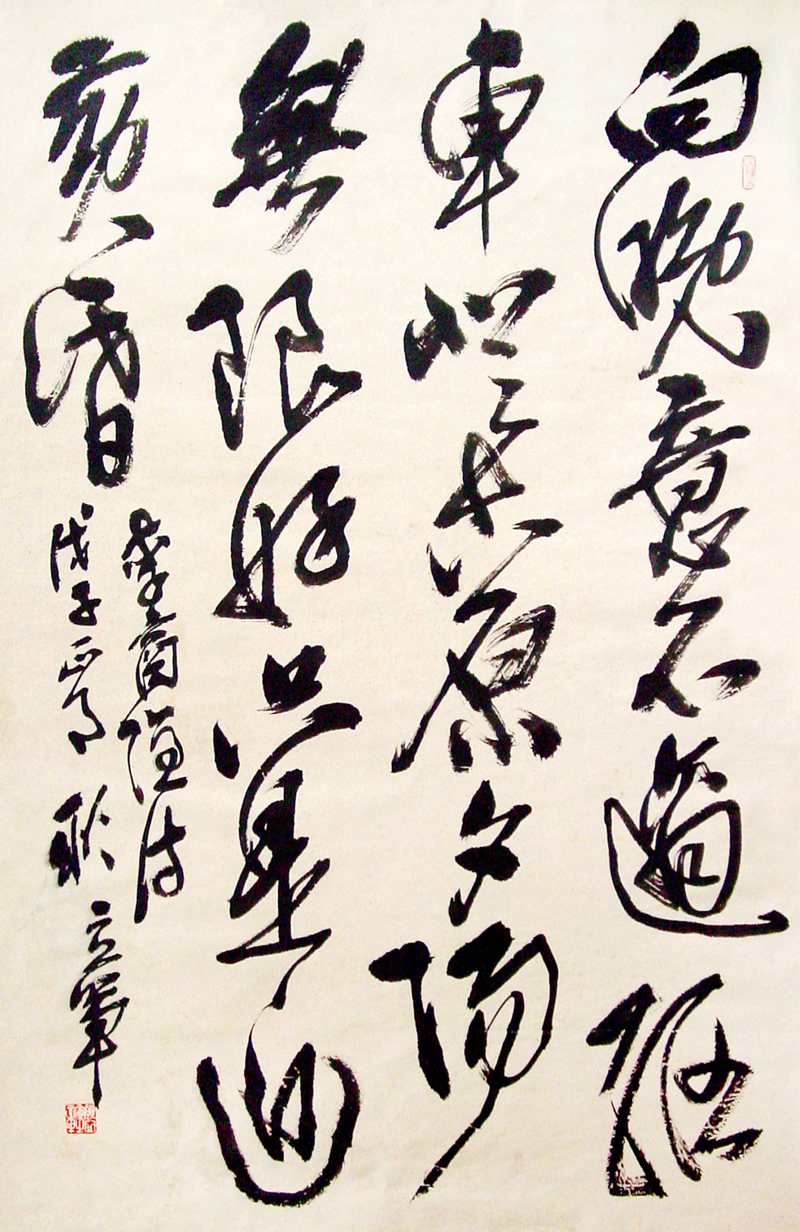 向晚意不適驅
車登古原夕陽
無限好只是近
黃昏
李商隱詩
戊子正月 耿立軍